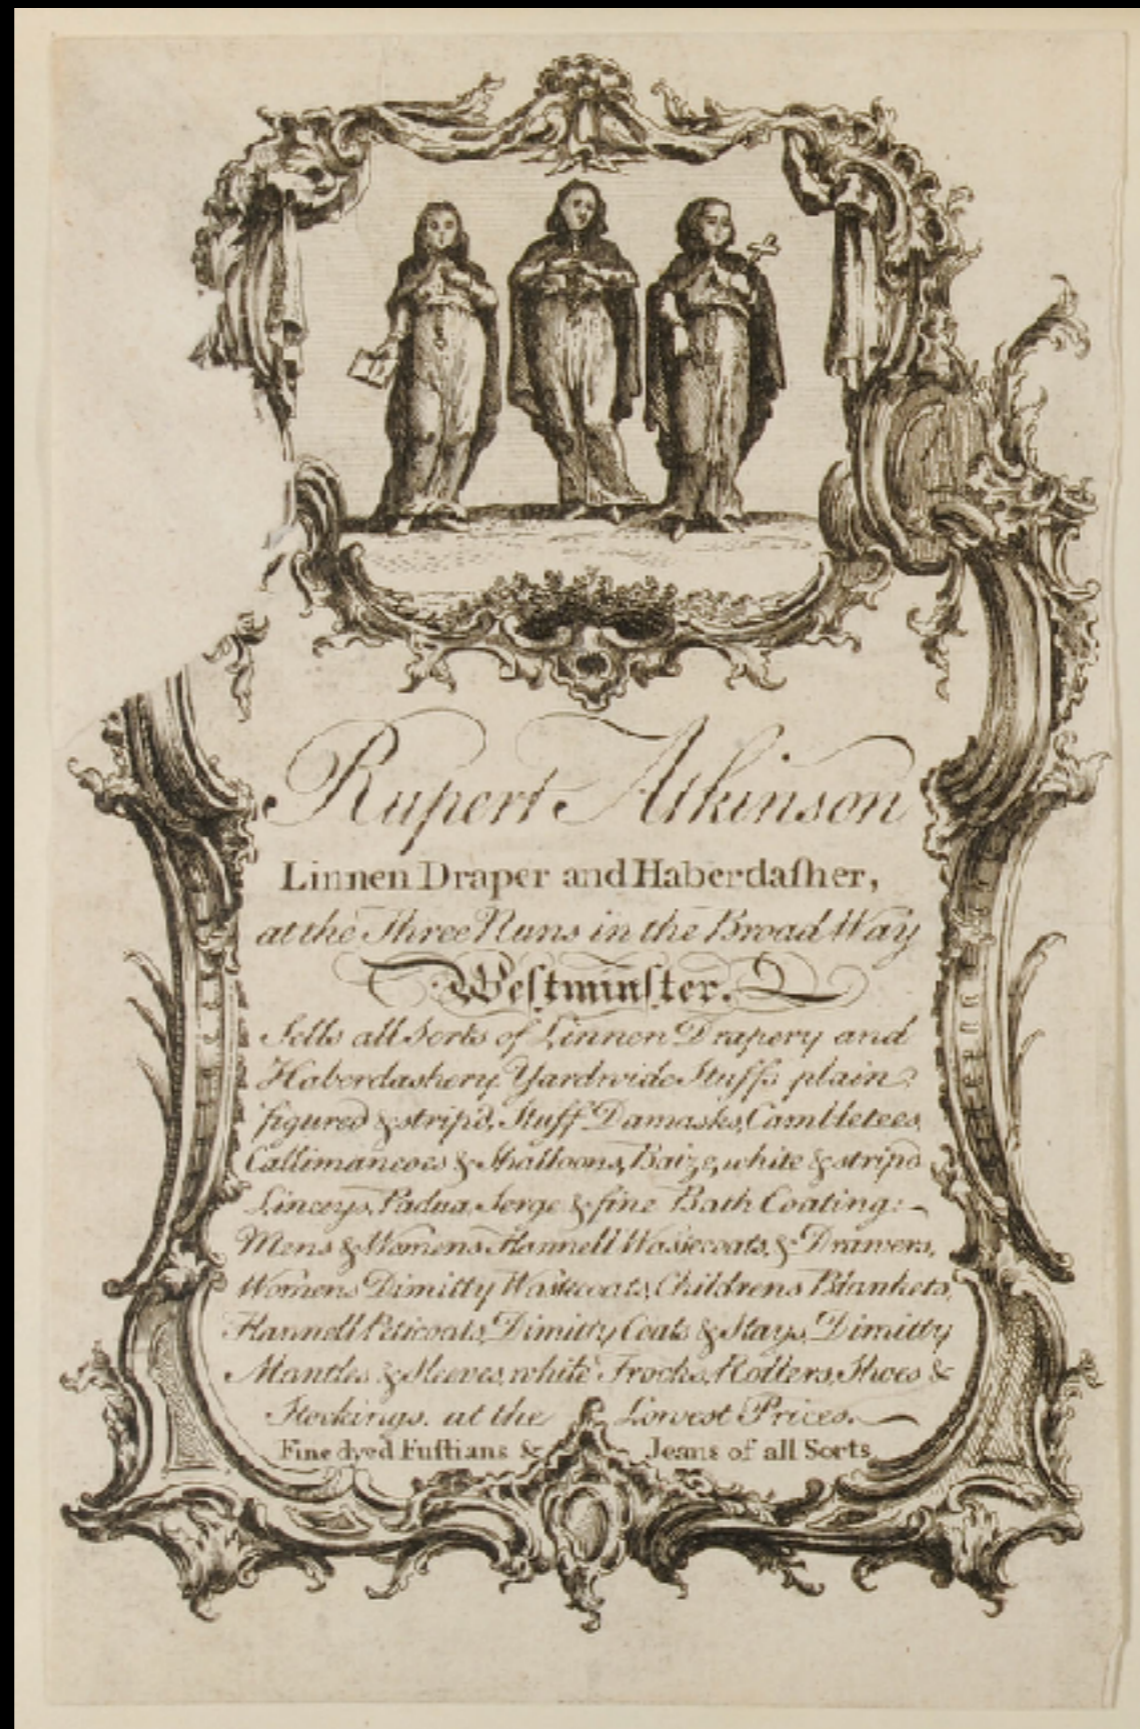 Rupert Atkinson
Linnen Draper and Haberdaſher,
at the Three Nuns in the Broad Way
Weſtminſter.
Sells all Sorts of Linnen Drapery and
Haberdashery, Yardwide Stuffs plain,
figured & strip'd, Stuff Damasks, Cambletees,
Callimancoes & Shalloons, Baize, white & strip'd
Linceys, Padua, Serge & fine Bath Coating:
Mens & Womens Flannell Wastecoats, & Drawers,
Womens Dimitty Wastecoats, Childrens Blankets,
Flannell Peticoats, Dimitty Coats & Stays, Dimitty
Mantles & Sleeves, white Frocks, Rollers, Shoes &
Stockings. at the Lowest Prices.
Fine dyed Fuſtians & Jeans of all Sorts